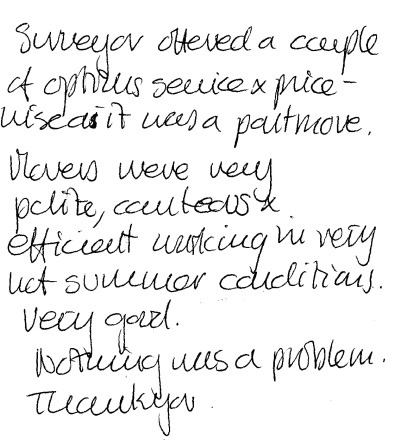 Surveyor offered a couple
of options service & price-
wise as it was a part move.
Movers were very
polite, courteous &
efficient working in very
hot summer conditions.
Very good.
Nothing was a problem.
Thankyou